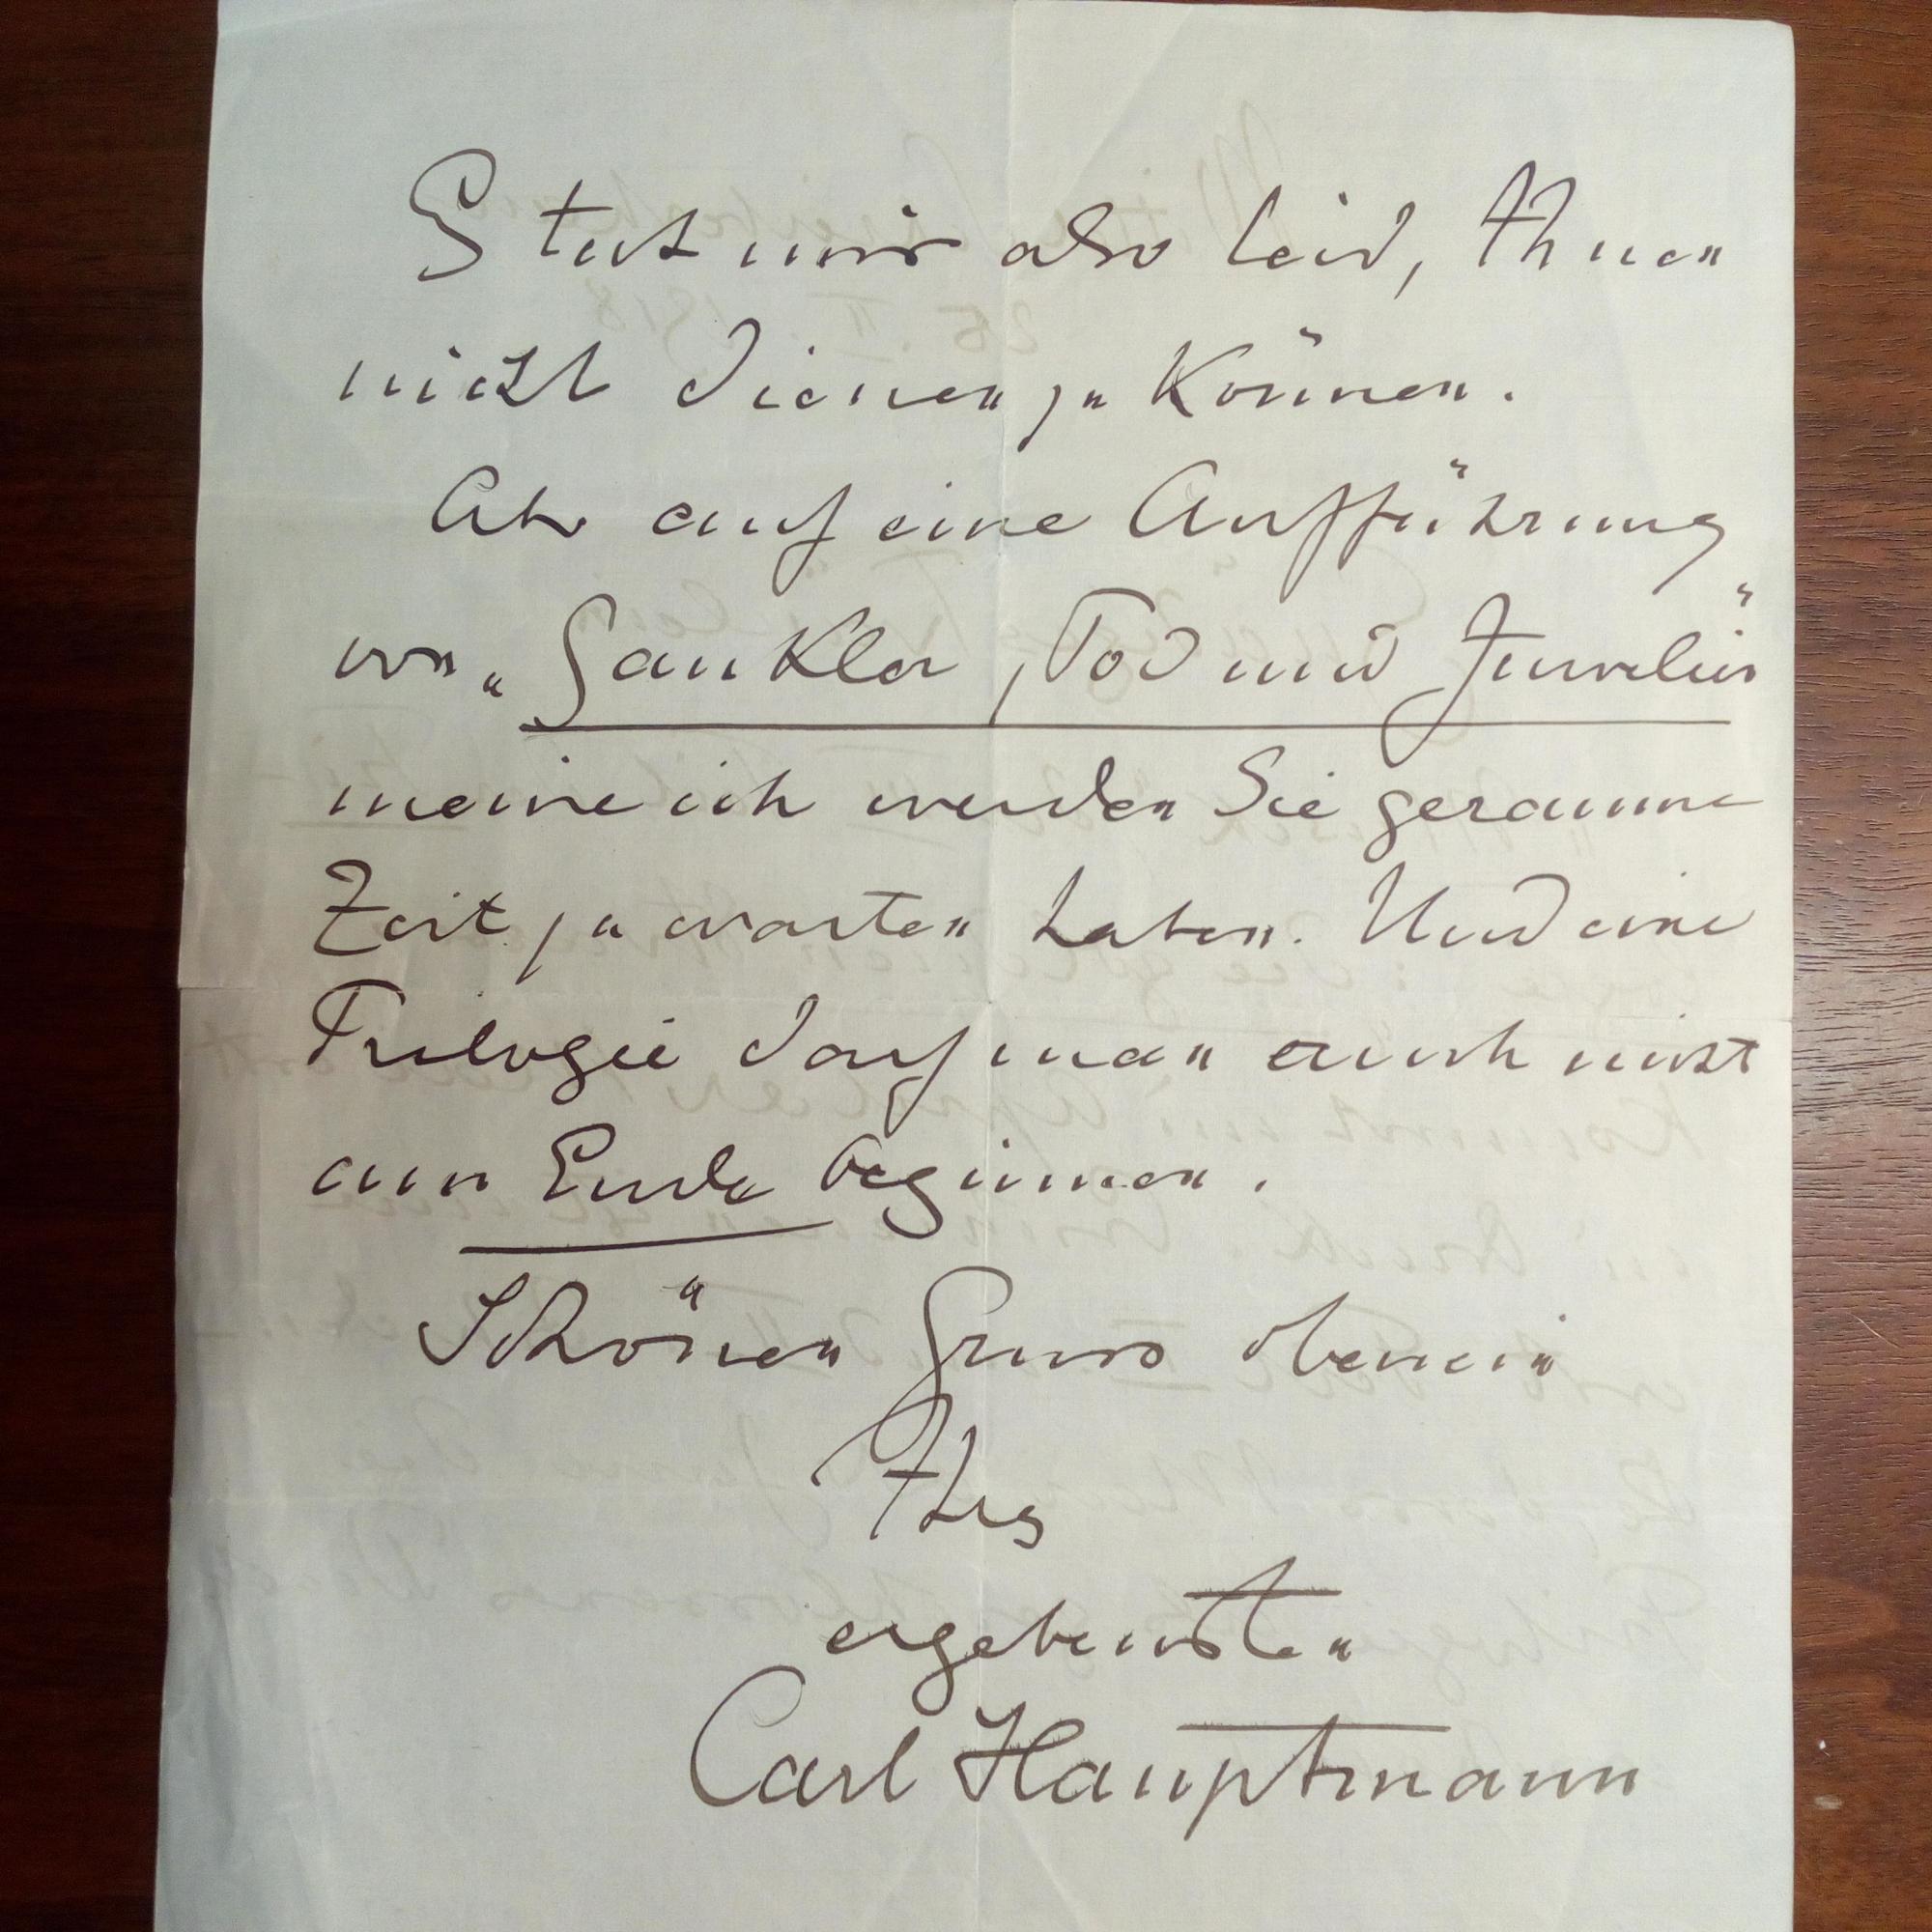 Es tut mir also leid, Ihnen
nicht dienen zu können.
Aber auf eine Aufführung
von „Gaukler, Tod und Juwelier“
meine ich werden Sie geraume
Zeit zu warten haben. Und eine
Trilogie darf man auch nicht
am Ende beginnen.
Schönen Gruss obenein
Ihres
ergebensten
Carl Hauptmann